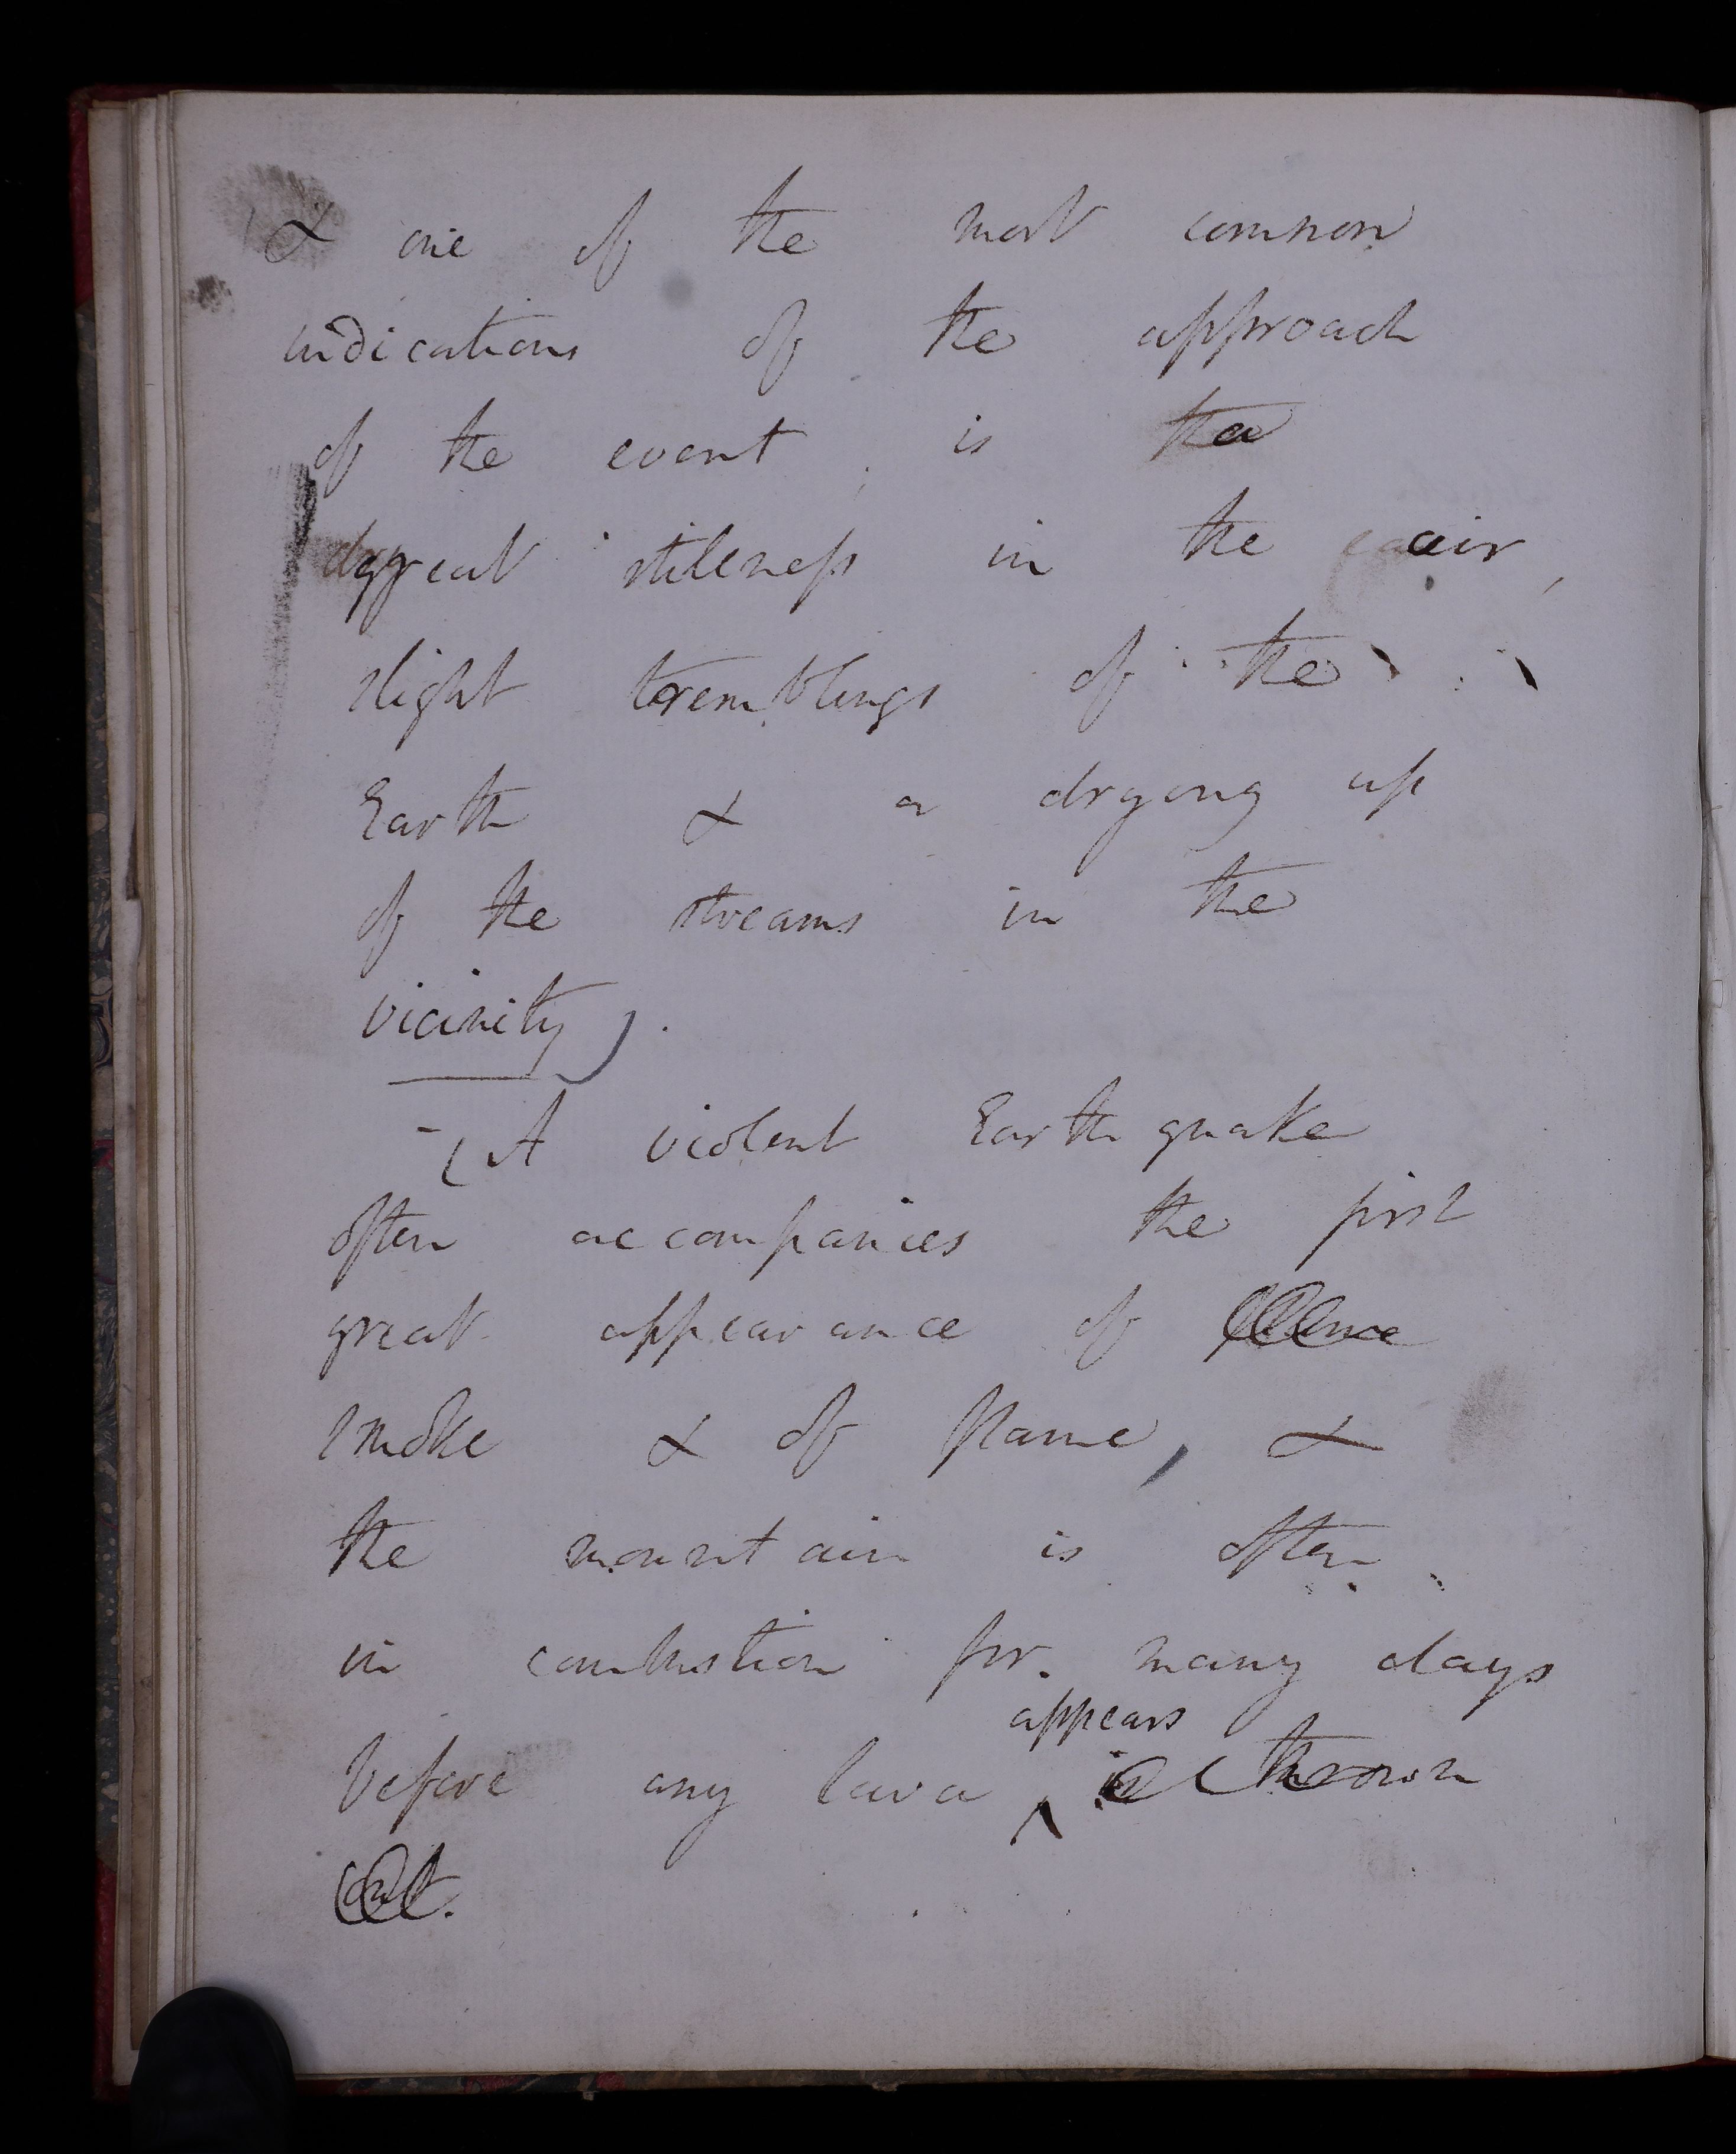 & one of the most common
indications of the approach
of the event is a
great stilness in the air,
slight tremblings of the
Earth & a drying up
of the streams in the
vicinity).
- (A violent Earthquake
often accompanies the first
great appearance of
smoke & of flame, &
the mountain is often
in combustion for many days
appears
before any lava ^ is thrown
out.